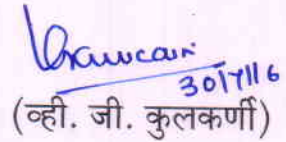 30/7/16
(व्ही. जी. कुलकर्णी)